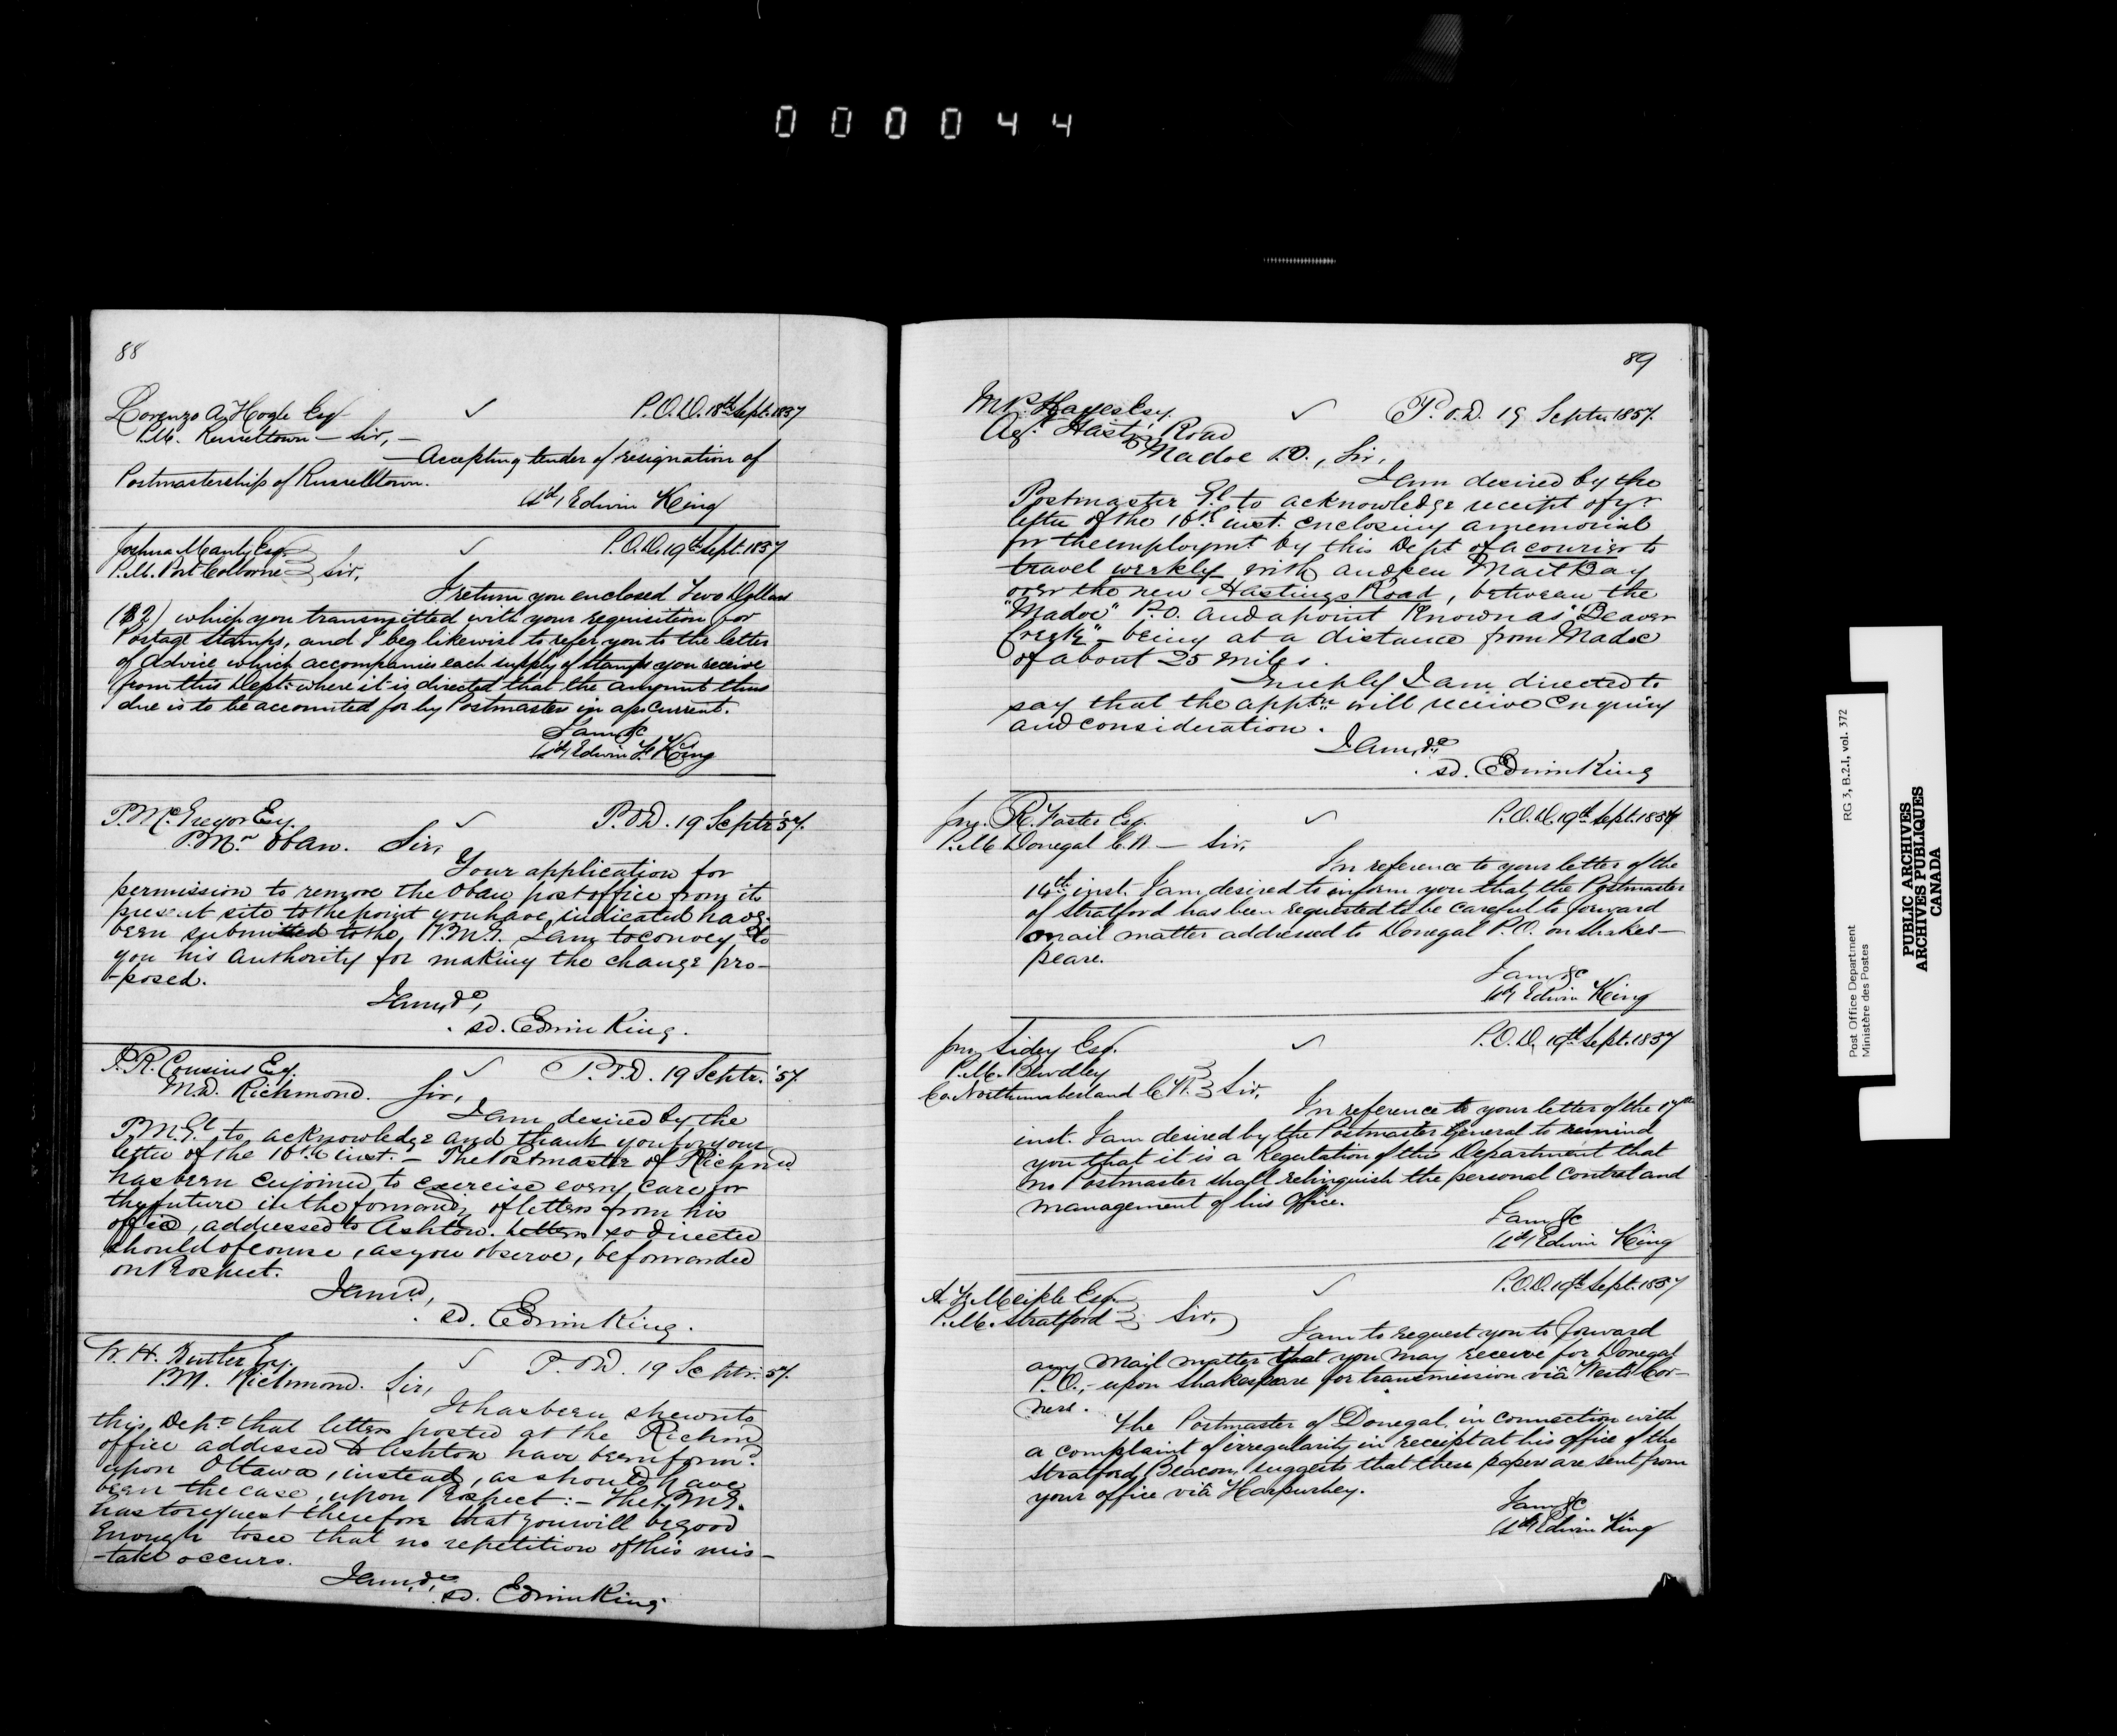 000044
88
Lorenzo A. Hogle Esq P.O.D. 18th Sept. 1857
P.M. Russeltown — Sir, —
— Accepting tender of resignation of
Postmastership of Russelltown.
(sd) Edwin King
Joshua Manly Esq. P.O.D. 19th Sept. 1857
P.M. Port Colborne Sir,
I return you enclosed Two Dollars
($2) which you transmitted with your requisition for
Postage Stamps, and I beg likewise to refer you to the letter
of advice which accompanies each supply of stamps you receive
from this Dept: where it is directed that the amount thus
due is to be accounted for by Postmasters in a/c current.
I am &c
(sd) Edwin F. King
P. McGregor Esq. P.O.D. 19 Septr '57.
P.Mr Oban. Sir,
Your application for
permission to remove the Oban post office from its
present site to the point you have indicated have
been submitted to the P.M.G. I am to convey to
you his authority for making the change pro-
-posed.
I am, &c,
sd. Edwin King.
P. R. Cousins Esq. P.O.D. 19 Septr. '57.
M.D. Richmond. Sir,
I am desired by the
P.M.Gl to acknowledge and thank you for your
letter of the 16th inst. — The Postmaster of Richmd
has been enjoined to exercise every care for
the future in the forwardg of letters from his
office, addressed to Ashton. Letters so directed
should of course, as you observe, be forwarded
on Prospect.
I am &c,
sd. Edwin King.
W. H. Butler Esq. P.O.D. 19 Septr. 57.
P.M. Richmond. Sir,
It has been shewn to
this Dept that letters posted at the Richmd
office addressed to Ashton have been forwd
upon Ottawa, instead, as should have
been the case, upon Prospect: — The P.M.G.
has to request therefore that you will be good
enough to see that no repetition of this mis-
-take occurs.
I am, &c,
sd. Edwin King
89
M.P. Hayes Esq. P.O.D. 19 Septr 1857.
Agt Hastgs Road
Madoc P.O., Sir,
I am desired by the
Postmaster Gl to acknowledge receipt of yr
letter of the 16th inst. enclosing a memorial
for the employmt by this Dept of a courier to
travel weekly with an open Mail Bag
over the new Hastings Road, between the
"Madoc" P.O. and a point known as "Beaver
Creek" — being at a distance from Madoc
of about 25 miles.
In reply I am directed to
say that the apptn will receive enquiry
and consideration.
I am, &c
sd. Edwin King
Jno. R. Foster Esq. P.O.D. 19th Sept. 1857
P.M. Donegal C.W. — Sir,
In reference to your letter of the
14th inst. I am desired to inform you that the Postmaster
of Stratford has been requested to be careful to forward
mail matter addressed to Donegal P.O. on Shakes-
peare.
I am &c
(sd) Edwin King
Jno Sidey Esq. P.O.D. 19th Sept. 1857
P.M. Bewdley
Co. Northumberland C.W. Sir,
In reference to your letter of the 17th
inst. I am desired by the Postmaster General to remind
you that it is a Regulation of this Department that
no Postmaster shall relinquish the personal Control and
management of his Office.
I am &c
(sd) Edwin King
P.O.D. 19th Sept. 1857
A. F. Meikle Esq.
P.M. Stratford Sir,
I am to request you to forward
any mail matter that you may receive for Donegal
P.O., upon Shakespeare for transmission viâ West's Cor-
ners.
The Postmaster of Donegal, in connection with
a complaint of irregularity in receipt at his office of the
Stratford Beacon, suggests that these papers are sent from
your office viâ Harpurhey.
I am &c
(sd) Edwin King
Post Office Department RG 3, B.2.1, vol. 372
Ministère des Postes
PUBLIC ARCHIVES
ARCHIVES PUBLIQUES
CANADA